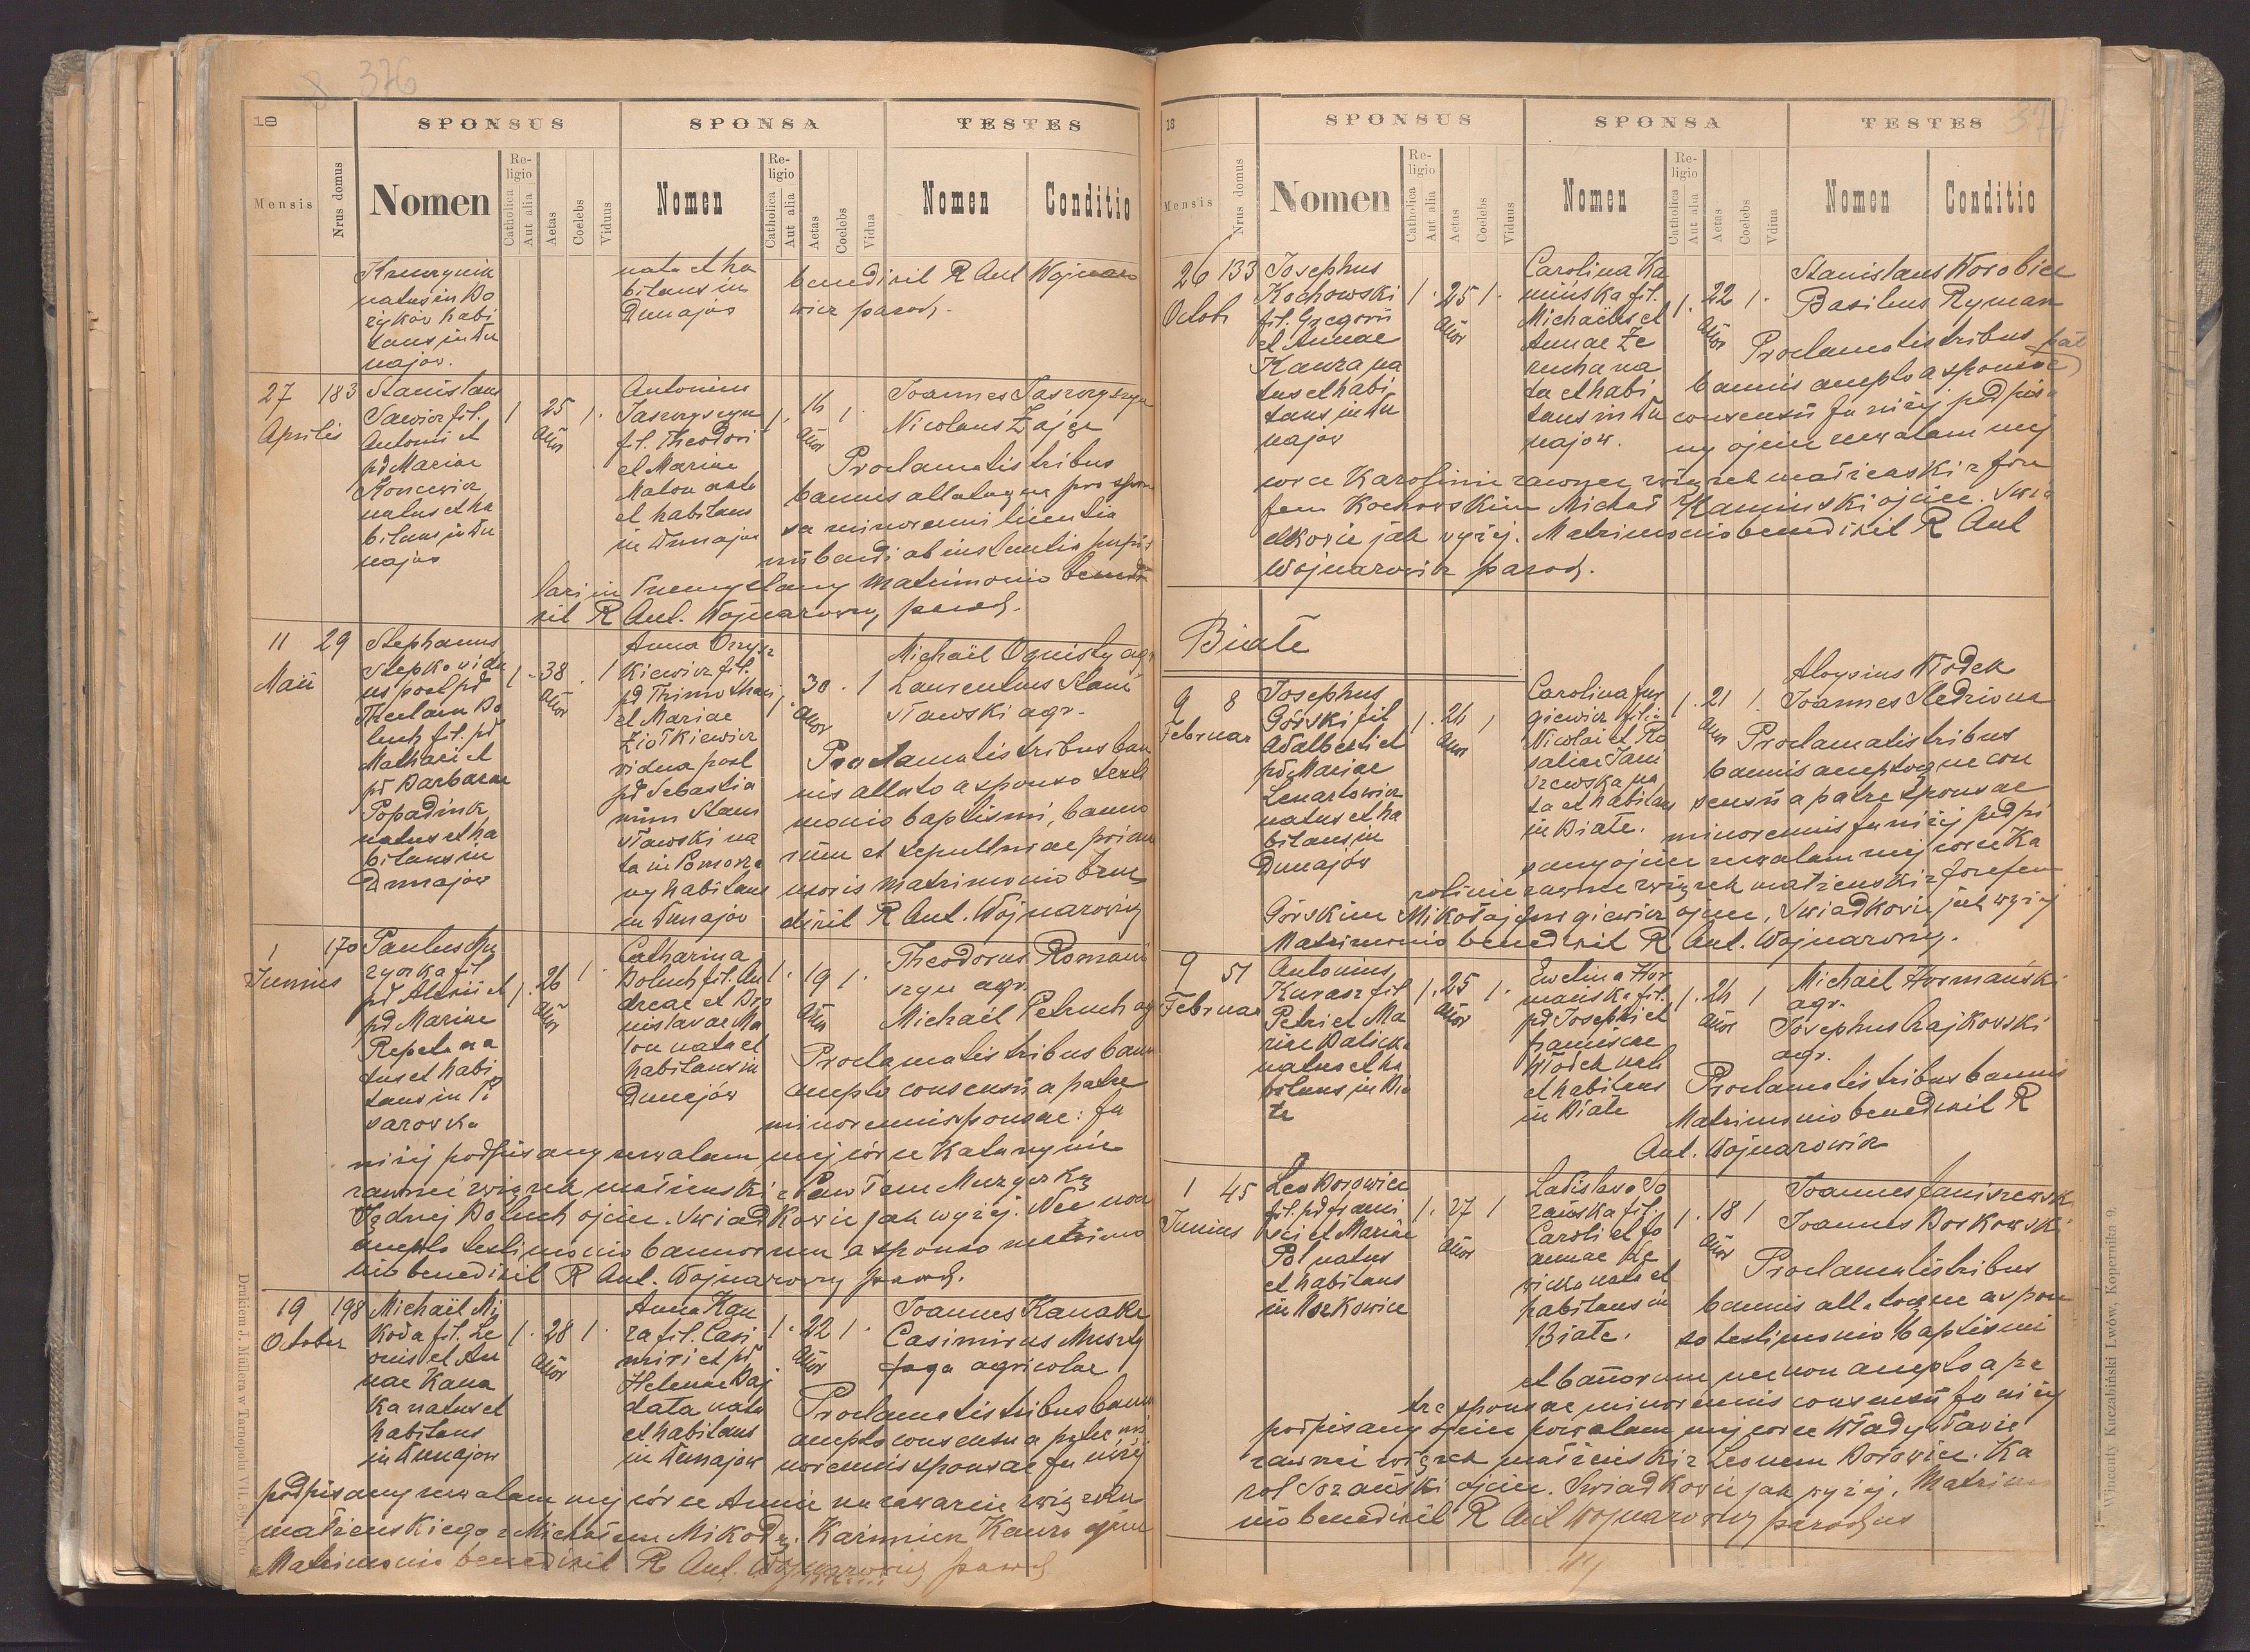 376
18
SPONSUS
SPONSA
TESTES
Mensis
Nrus domus
Nomen
Religio
Catholica
Aut alia
Aetas
Coelebs
Viduus
Nomen
Religio
Catholica
Aut alia
Aetas
Coelebs
Vidua
Nomen
Conditio
natus in Bo
żyków habi
tans in Du
najow.
nata et ha
bitans in
Dunajów
benedixit R Ant Wojnaro
wicz paroch.
27 183
Aprilis
Stanislaus
Sawior fil.
Antoni et
pd Mariae
Koncewicz
natus et ha
bitans in Du
najów
1 25 1.
annor
Antonina
Jaszczyszyn
fil. Theodori
et Mariae
Maton nata
et habitans
in Dunajów
1. 16 1.
annor
Joannes Jaszczyszyn
Nicolaus Zając
Proclamatis tribus
bannis allataque pro spon
sa minorenni licentia
nubendi ab instantia pupil
lari in Przemyslany Matrimonio bened
xit R Ant. Wojnarowicz paroch.
11 29
Maii
Stephanus
Stepko vidu
us post pd
Theclam Bo
luch fil. pd
Mathaei et
pd Barbarae
Popadiuk
natus et ha
bitans in
Dunajów
1. 38 . 1
annor
Anna
kiewicz fil.
pd Thimothaei
et Mariae
Ziołkiewicz
vidua post
pd Sebastia
num Stani
sławski na
ta in Pomorza
ny habitans
in Dunajów
1. 30 . 1
annor
Michaël Ognisty agr
Laurentius Stani
sławski agr.
Proclamatis tribus ban
nis allato a sponso testi
monio baptismi, banno
rum et sepulturae prioris
uxoris matrimonio bene
dixit R Ant. Wojnarowicz
1 170
Junius
Paulus Mu
zyczka fil
pd Alexii et
pd Mariae
Repeta na
tus et habi
tans in Pi
sarowka
1. 26 1.
annor
Catharina
Boluch fil. An
dreae et Bro
nislavae Ma
ton nata et
habitans in
Dunajów
1. 19 1.
annor
Theodorus Romani
szyn agr.
Michaël Petruch agr
Proclamatis tribus bann
accepto consensu a patre
minorennis sponsae: Ja
niżej podpisany zezwalam mej córce Katarzynie
zawrzeć związek małżeński z Pawłem Muzyczką
Jędrzej Boluch ojciec. Świadkowie jak wyżej. Nec non
accepto testimonio bannorum a sponso matrimo
nio benedixit R Ant. Wojnarowicz paroch.
19 198
October
Michaël Mi
koda fil. Le
onis et An
nae Kana
ka natus et
habitans
in Dunajow
1. 28 1.
annor
Anna Kau
za fil. Casi
miri et pd
Helenae Baj
data nata
et habitans
in Dunajow
1. 22 1.
annor
Joannes Kanaka
Casimirus Muszty
faga agricolae
Proclamatis tribus bann
accepto consensu a patre mi
norennis sponsae Ja niżej
podpisany zezwalam mej córce Annie na zawarcie związku
małżeńskiego z Michałem Mikodą. Kazimierz Kauza ojciec
Matrimonio benedixit R Ant. Wojnarowicz paroch
Drukiem J. Müllera w Tarnopolu
377
18
SPONSUS
SPONSA
TESTES
Mensis
Nrus domus
Nomen
Religio
Catholica
Aut alia
Aetas
Coelebs
Viduus
Nomen
Religio
Catholica
Aut alia
Aetas
Coelebs
Vdiua
Nomen
Conditio
26 133
Octobr
Josephus
Kochowski
fil. Gregorii
et Annae
Kauza na
tus et habi
tans in Du
najow
1. 25 1.
annor
Carolina Ka
mińska fil.
Michaëlis et
Annae Że
rucha na
ta et habi
tans in Du
najow.
1. 22 1.
annor
Stanislaus Worobiec
Basilius Ryman
Proclamatis tribus
bannis accepto a sponsae
consensu Ja niżej podpisa
ny ojciec zezwalam mej
corce Karolinie zawrzeć związek małżeński z Józe
fem Kochowskim Michał Kamiński ojciec. Świa
dkowie jak wyżej. Matrimonio benedixit R Ant
Wojnarowicz paroch.
Białe
9 8
Februar
Josephus
Górski fil
Adalberti et
pd Mariae
Lenartowicz
natus et ha
bitans in
Dunajów
1. 24 1
annor
Carolina Jur
giewicz filia
Nicolai et Ro
saliae Jani
szewska na
ta et habitans
in Białe.
1. 21 1.
annor
Aloysius Włodek
Joannes Śledziona
Proclamatis tribus
bannis acceptoque con
sensu a patre sponsae
minorennis Ja niżej podpi
sany ojciec zezwalam mej corce Ka
rolinie zawrzeć związek małżeński z Józefem
Górskim Mikołaj Jurgiewicz ojciec, Świadkowie jak wyżej
Matrimonio benedixit R Ant. Wojnarowicz.
9 51
Februar
Antonius
Kurasz fil
Petri et Ma
riae Balicka
natus et ha
bitans in Bia
łe
1. 25 1.
annor
Ewelina Hor
mańska fil.
pd Josephi et
Franciscae
Włodek nata
et habitans
in Białe
1. 24 1
annor
Michaël Hormański
agr.
Josephus Czajkowski
agr.
Proclamatis tribus bannis
Matrimonio benedixit R
Ant. Wojnarowicz
1 45
Junius
Leo Borowiec
fil. pd Franci
sci et Mariae
Pol natus
et habitans
in
1. 27 1
annor
Ladislava So
zańska fil.
Caroli et Jo
annae
nata et
habitans in
Białe.
1. 18 1
annor
Joannes Janiszewski
Joannes Boskowski
Proclamatis tribus
bannis allatoque a spon
so testimonio baptismi
et bannorum necnon accepto a pa
tre sponsae minorennis consensu Ja niżej
podpisany ojciec pozwalam mej corce Władysławie
zawrzeć związek małżeński z Leonem Borowiec. Ka
rol Sozański ojciec. Świadkowie jak wyżej. Matrimo
nio benedixit R Ant Wojnarowicz parochus
Wincenty Kuczabiński Lwów, Kopernika 9.